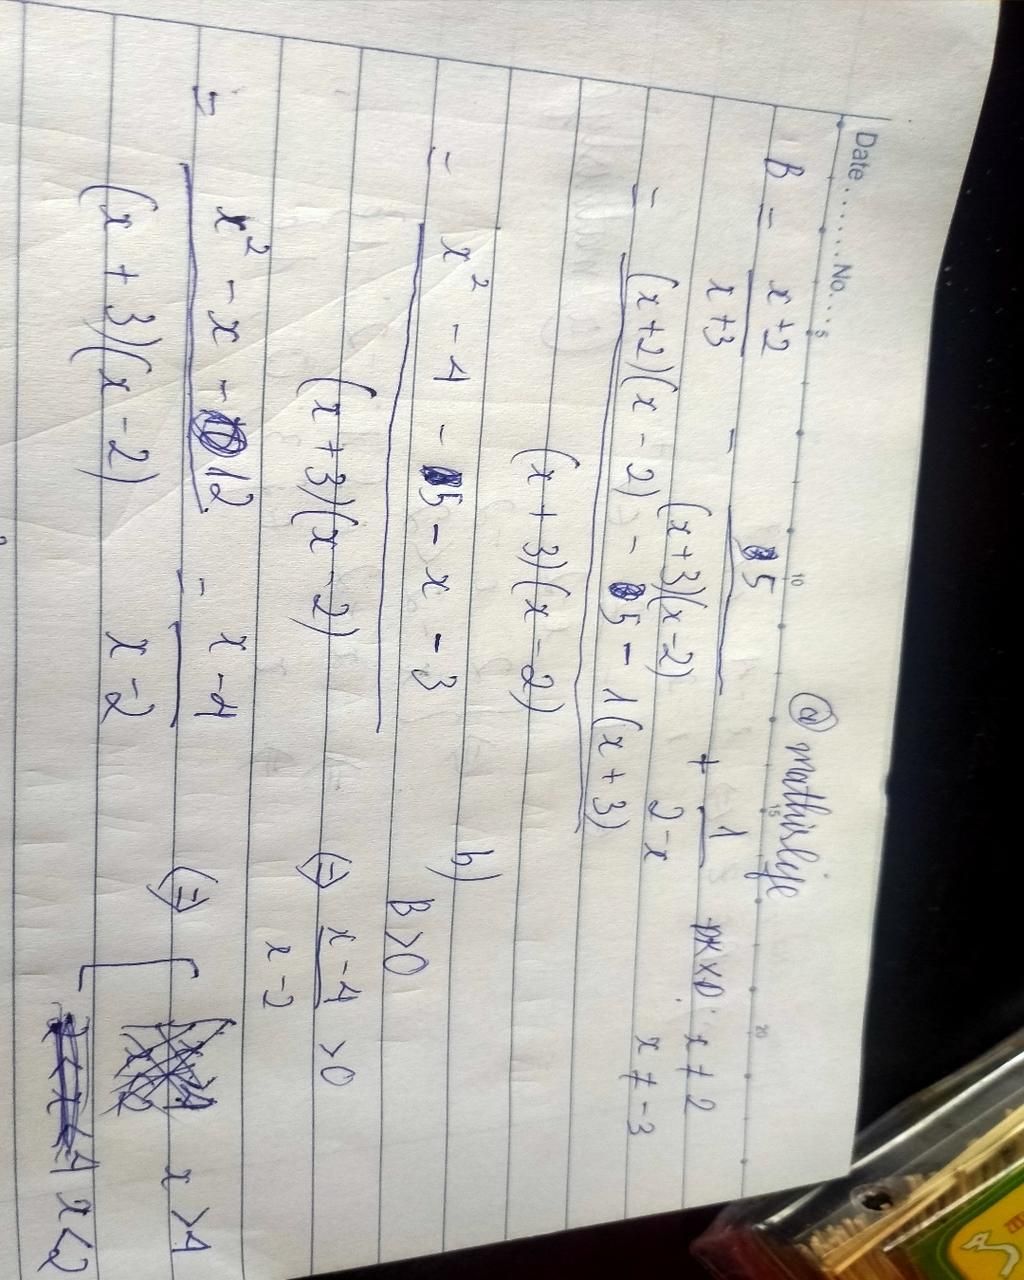 Date ...... No. ...
5 10 15 20
@mathislife
B = x+2/x+3 - 5/(x+3)(x-2) + 1/2-x ĐKXĐ: x ≠ 2
x ≠ -3
= (x+2)(x-2) - 5 - 1(x+3)/(x+3)(x-2)
= x² - 4 - 5 - x - 3/(x+3)(x-2)
= x² - x - 12/(x+3)(x-2) = x-4/x-2
b)
B > 0
⇔ x-4/x-2 > 0
⇔ [ x > 4
x < 2